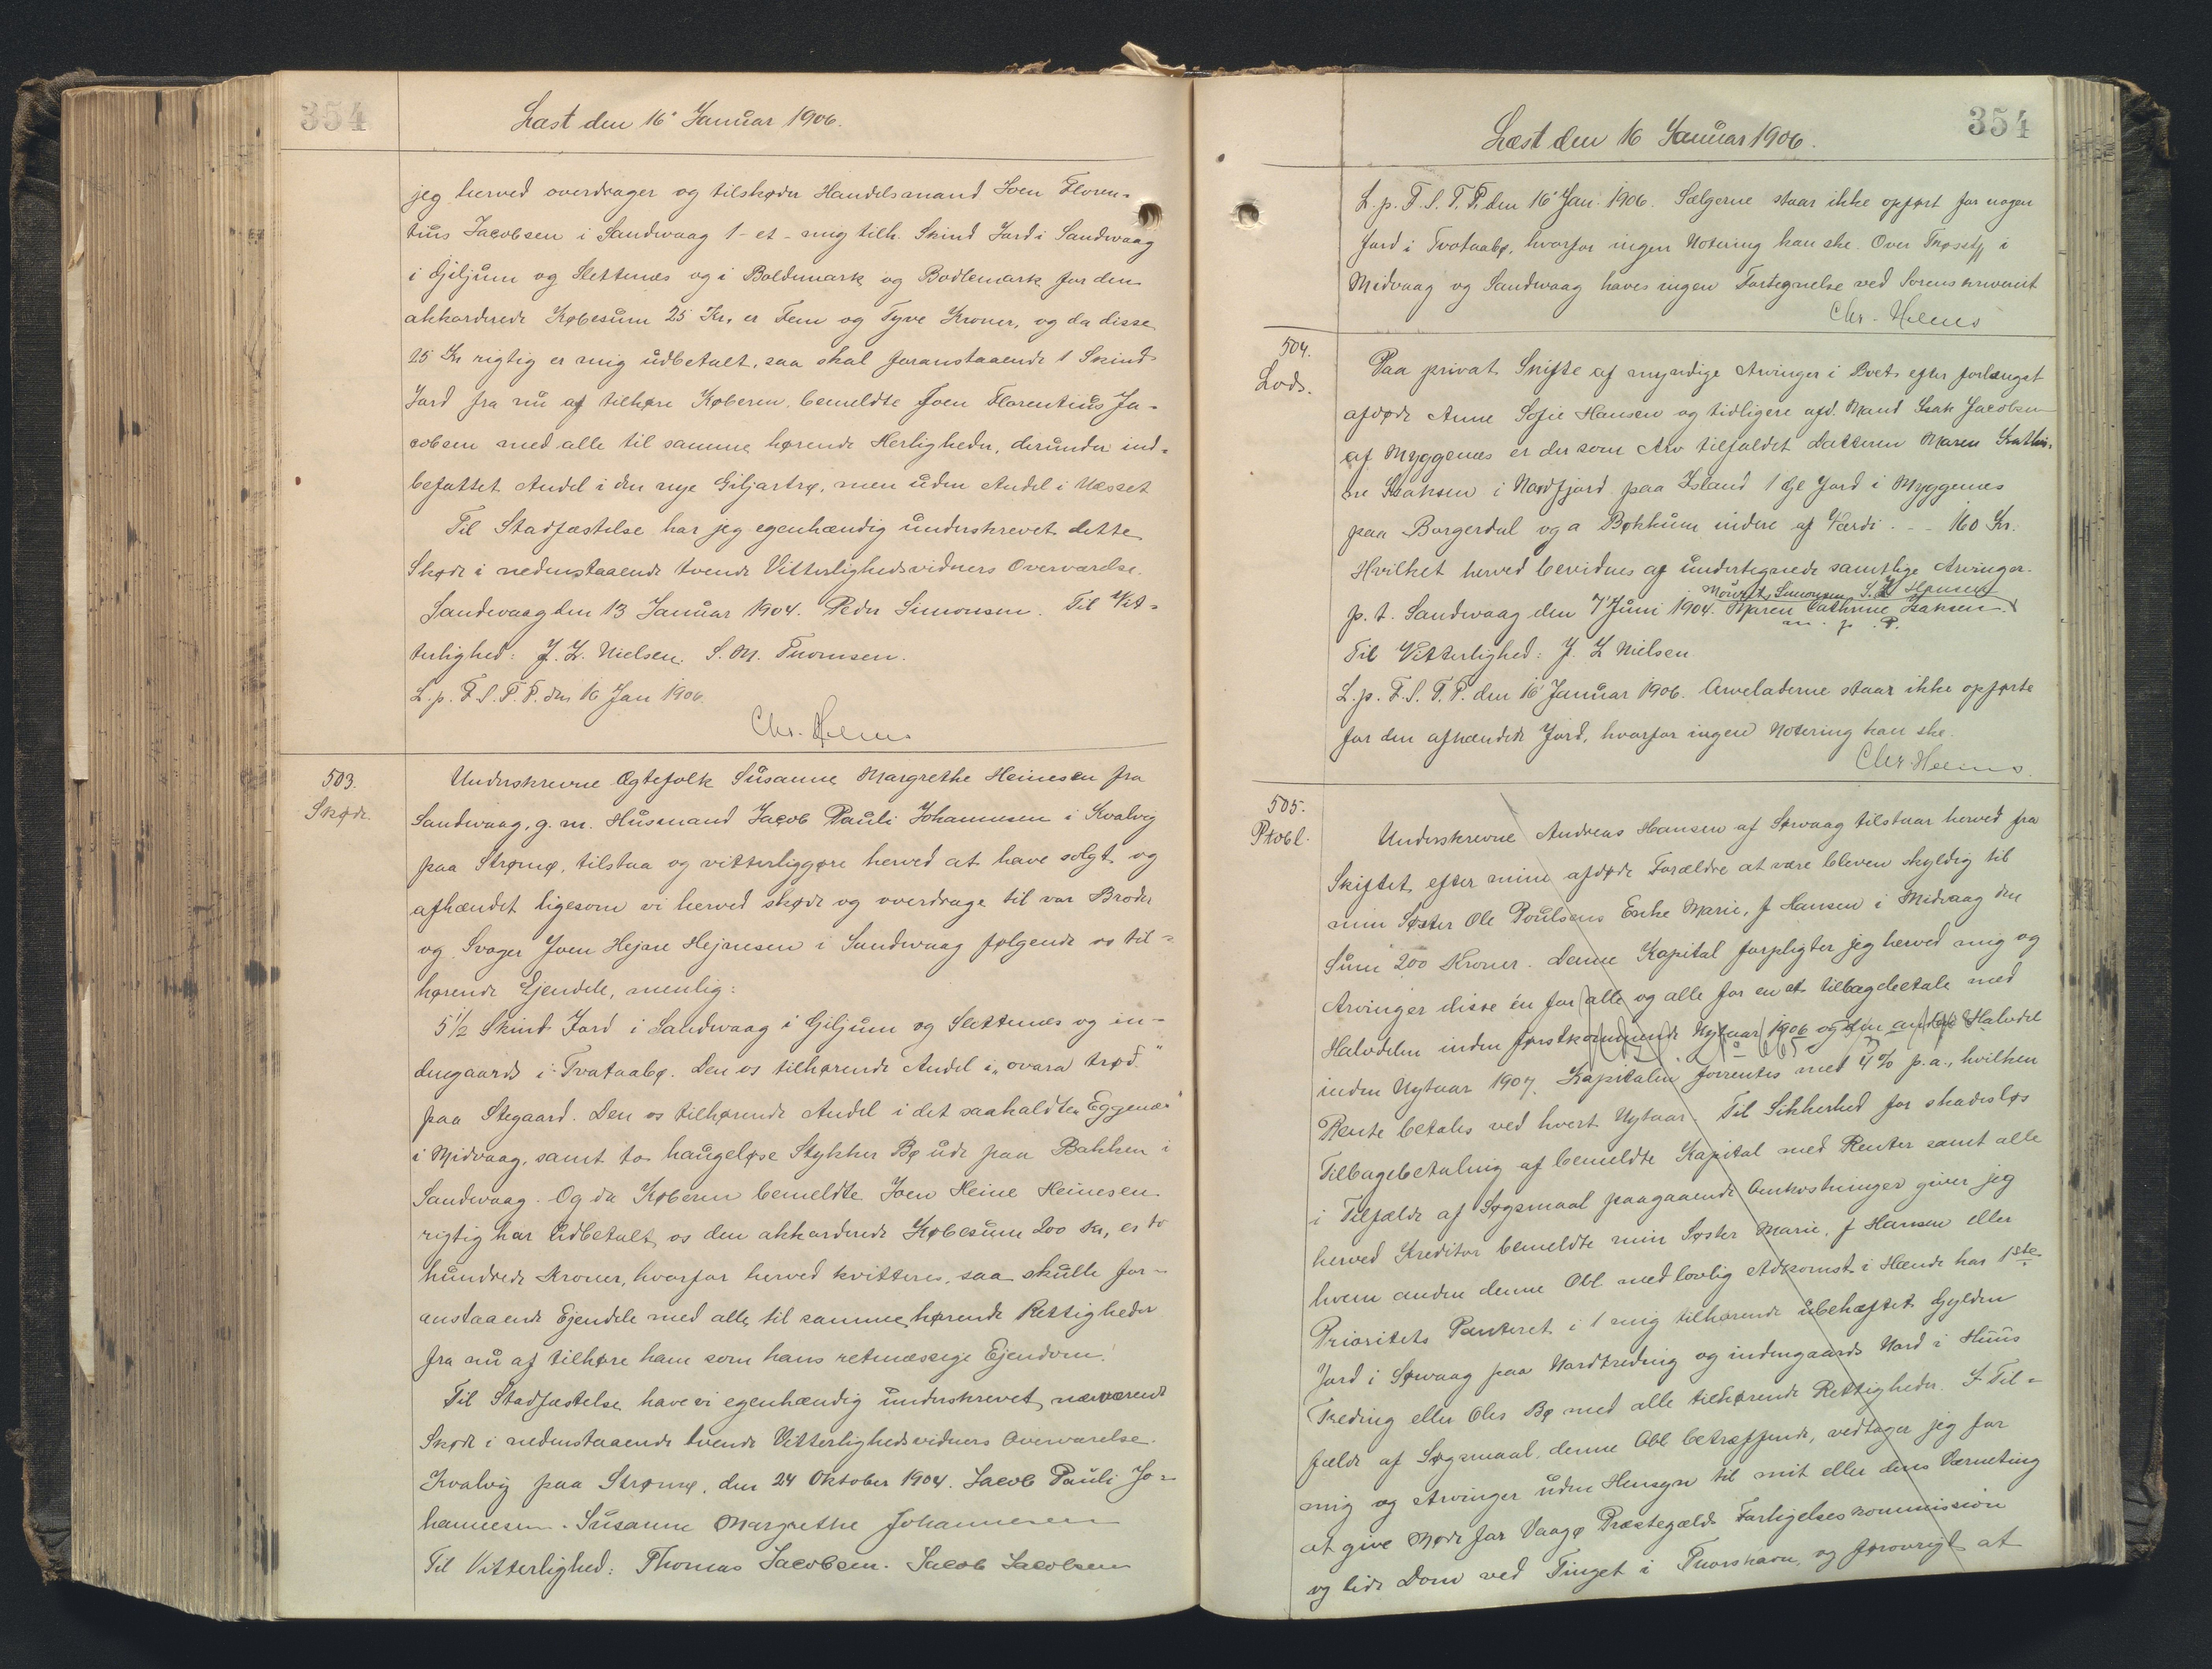 354
Læst den 16' Januar 1906.
jeg herved overdrager og tilskøder Handelsmand Joen Floren-
tius Jacobsen i Sandevaag 1 - et - mig tilh. Skind Jord i Sandevaag
i Giljum og Slettenæs og i Boldemark og Bodlemark for den
akkorderede Købesum 25 Kr. er Fem og Tyve Kroner, og da disse
25 Kr rigtig er mig udbetalt, saa skal foranstaaende 1 Skind
Jord fra nu af tilhøre Køberen, bemeldte Joen Florentius Ja-
cobsen med alle til samme hørende Herligheder, derunder ind-
befattet Andel i den nye Giljartrø, men uden Andel i Næsset
Til Stadfæstelse har jeg egenhændig underskrevet dette
Skøde i nedenstaaende tvende Vitterlighedsvidners Overværelse.
Sandevaag den 13 Januar 1904. Peder Simonsen. Til Vit-
terlighed: J. Z. Nielsen. S. M. Thomsen.
L. p. F. S. T. P. den 16 Jan 1906.
Chr. Helms
503.
Skøde.
Underskrevne Ægtefolk Susanne Margrethe Heinesen fra
Sandevaag, g. m. Husmand Jacob Pauli Johannesen i Kvalvig
paa Strømø, tilstaa og vitterliggøre herved at have solgt og
afhændet ligesom vi herved skøde og overdrage til vor Broder
og Svoger Joen Hejne Hejnesen i Sandevaag følgende os til-
hørende Ejendele, nemlig:
5 1/2 Skind Jord i Sandevaag i Giljum og Slettenæs og in-
dengaards i Tvataabø. Den os tilhørende Andel i "ovara trød"
paa Stegaard. Den os tilhørende Andel i det saakaldte "Eggenæs"
i Midvaag, samt to haugeløse Stykker Bø ude paa Bakken i
Sandevaag. Og da Køberen bemeldte Joen Heine Heinesen
rigtig har udbetalt os den akkorderede Købesum 200 Kr, er to
hundrede Kroner, hvorfor herved kvitteres, saa skulle for-
anstaaende Ejendele med alle til samme hørende Rettigheder
fra nu af tilhøre ham som hans retmæssige Ejendom.
Til Stadfæstelse have vi egenhændig underskrevet nærværende
Skøde i nedenstaaende tvende Vitterlighedsvidners Overværelse.
Kvalvig paa Strømø, den 24 Oktober 1904. Jacob Pauli Jo-
hannesen. Susanne Margrethe Johannesen
Til Vitterlighed: Thomas Jacobsen. Jacob Jacobsen
354
Læst den 16 Januar 1906.
L. p. F. S. T. P. den 16' Jan. 1906. Sælgerne staar ikke opført for nogen
Jord i Tvataabø, hvorfor ingen Notering kan ske. Over i
Midvaag og Sandevaag haves ingen Fortegnelse ved Sorenskriveriet
Chr. Helms
504.
Lods.
Paa privat Skifte af myndige Arvinger i Boet efter forlængst
afdøde Anne Sofie Hansen og tidligere afd. Mand Isak Jacobsen
af Myggenæs er der som Arv tilfaldet Datteren Maren Kathri-
ne Isaksen i Nordfjord paa Island 1 Gl Jord i Myggenæs
paa Borgerdal og a Bøkkum indere af Værdi . - - 160 Kr.
Hvilket herved bevidnes af undertegnede samtlige Arvinger.
Mourits Simonsen S. I. Hansen
p. t. Sandevaag den 7' Juni 1904. Maren Cathrine Isaksen.
m. p. P.
Til Vitterlighed: J. Z Nielsen
L. p. F. S. T. P. den 16' Januar 1906. Arveladerne staar ikke opførte
for den afhændede Jord, hvorfor ingen Notering kan ske.
Chr. Helms.
505.
Ptobl.
Underskrevne Andreas Hansen af Sørvaag tilstaar herved fra
Skiftet efter mine afdøde Forældre at være bleven skyldig til
min Søster Ole Poulsens Enke Marie, f Hansen i Midvaag den
Sum 200 Kroner. Denne Kapital forpligter jeg herved mig og
Arvinger disse én for alle og alle for en at tilbagebetale med
Halvdelen inden førstkommende Nytaar 1906 og den anden Halvdel
inden Nytaar 1907. Kapitalen forrentes med 4 % p. a., hvilken
Rente betales ved hvert Nytaar. Til Sikkerhed for skadesløs
Tilbagebetaling af bemeldte Kapital med Renter samt alle
i Tilfælde af Søgsmaal paagaaende Omkostninger giver jeg
herved Kreditor bemeldte min Søster Marie, f Hansen eller
hvem anden denne Obl. med lovlig Adkomst i Hænde har 1ste
Prioritets Panteret i 1 mig tilhørende ubehæftet Gylden
Jord i Sørvaag paa Nordtreding og indengaards Nord i Huus
Treding eller Oles Bø med alle tilhørende Rettigheder. I Til-
fælde af Søgsmaal, denne Obl betræffende, vedtager jeg for
mig og Arvinger uden Hensyn til mit eller deres Værneting
at give Møde for Vaagø Præstegælds Forligelseskommission
og lide Dom ved Tinget i Thorshavn, og forøvrigt at